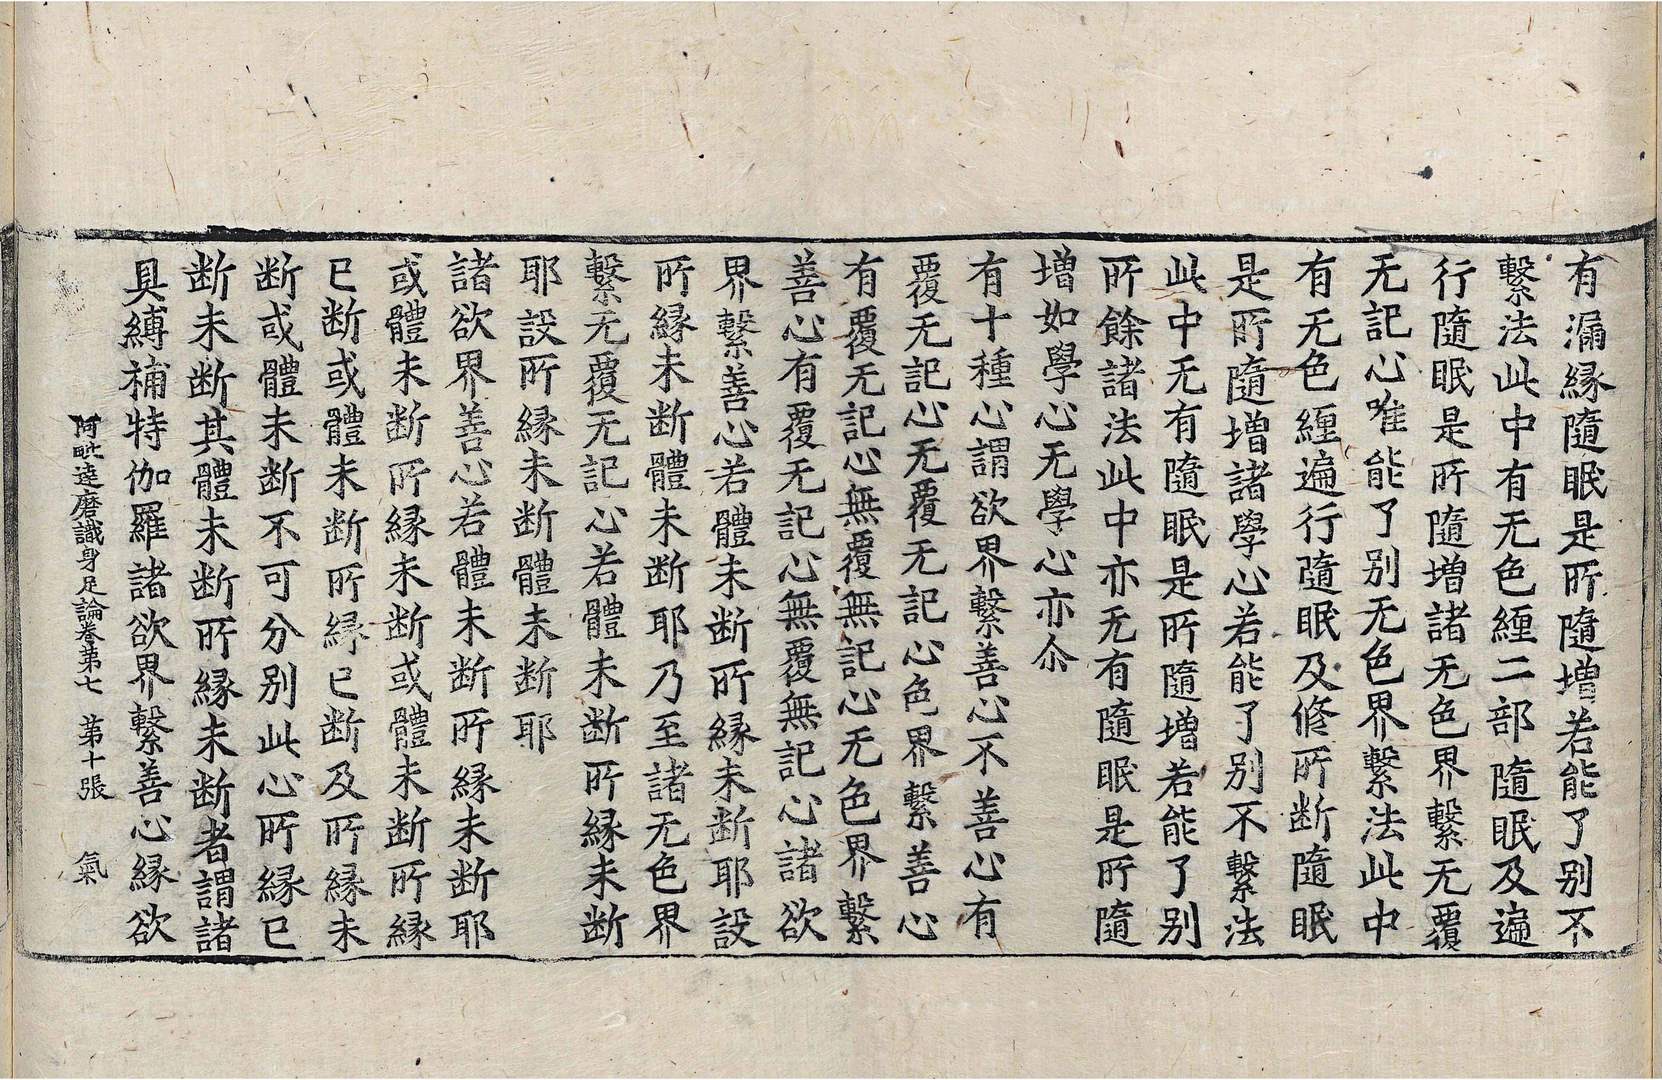 有漏緣隨眠是所隨增若能了別不
繫法此中有无色纏二部隨眠及遍
行隨眠是所隨增諸无色界繫无覆
无記心唯能了別无色界繫法此中
有无色纏遍行隨眠及修所斷隨眠
是所隨增諸學心若能了別不繫法
此中无有隨眠是所隨增若能了別
所餘諸法此中亦无有隨眠是所隨
增如學心无學心亦尒
有十種心謂欲界繫善心不善心有
覆无記心无覆无記心色界繫善心
有覆无記心無覆無記心无色界繫
善心有覆无記心無覆無記心諸欲
界繫善心若體未断所縁未断耶設
所縁未断體未断耶乃至諸无色界
繫无覆无記心若體未断所縁未断
耶設所縁未断體未断耶
諸欲界善心若體未断所縁未断耶
或體未断所縁未断或體未断所縁
已断或體未断所縁已断及所縁未
断或體未断不可分別此心所縁已
断未断其體未断所縁未断者謂諸
具縛補特伽羅諸欲界繫善心縁欲
阿毗達磨識身足論卷第七 第十張 氣